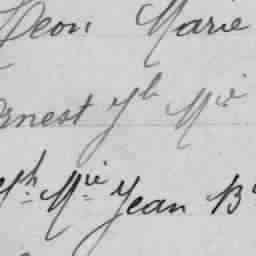 Léon Marie
Ernest Jh Mie
Jh Mie Jean Bte